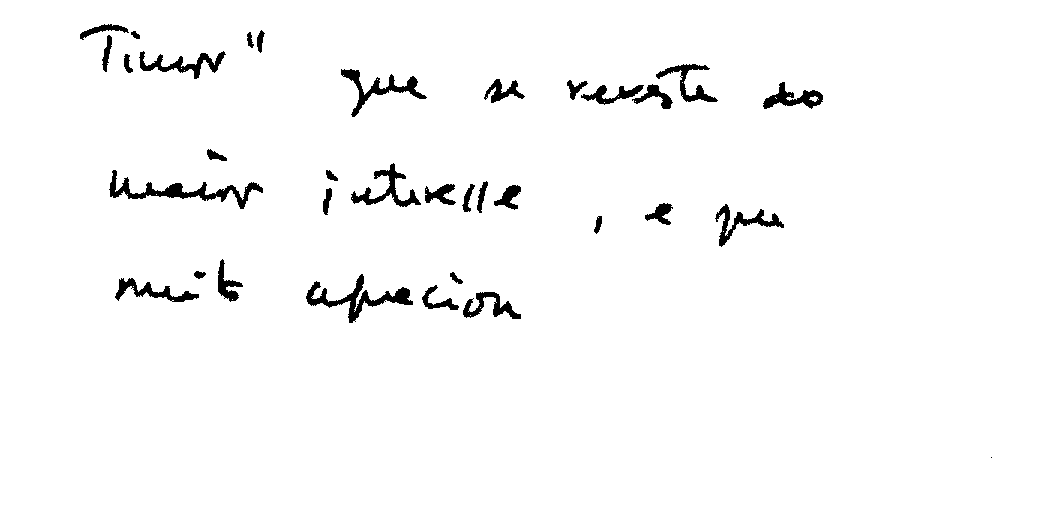 Timor" que se reveste do
maior interesse, e que
muito apreciou